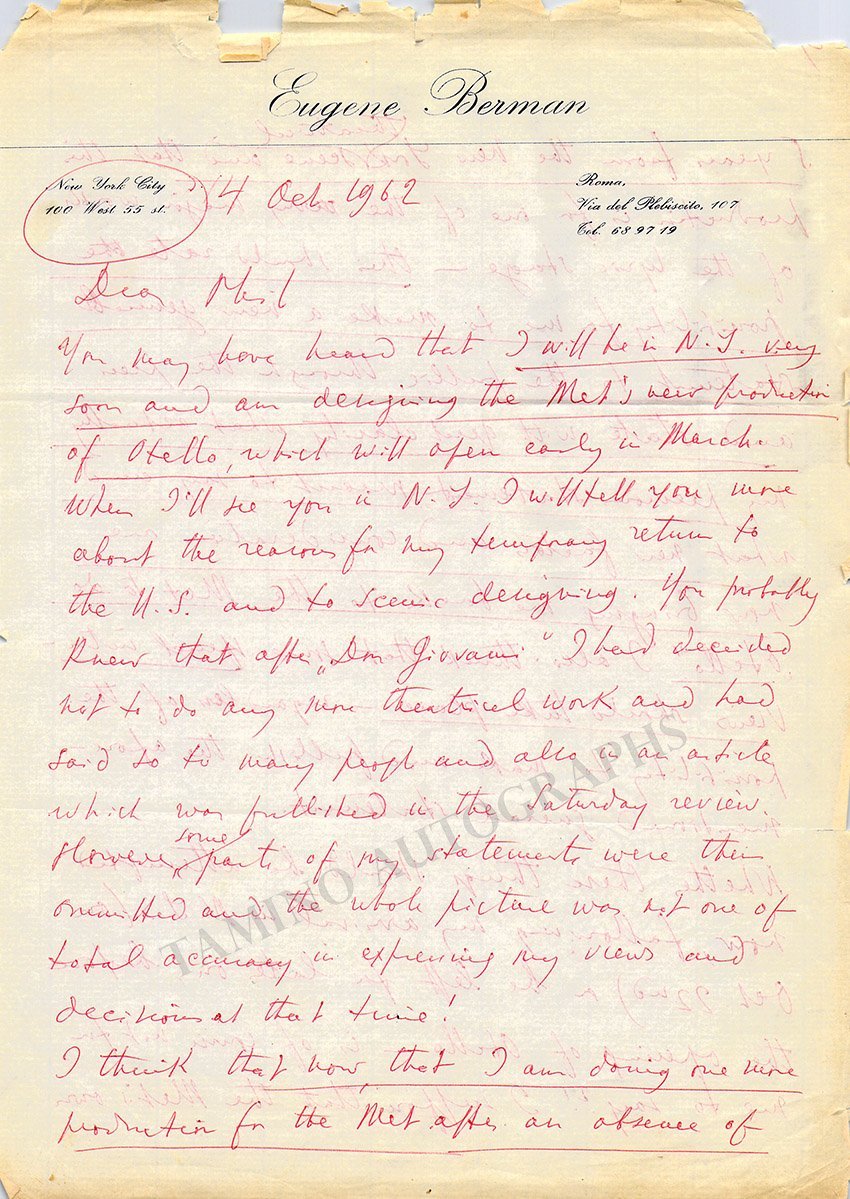 Eugene Berman
New York City
100 West 55 st.
4 Oct 1962
Roma,
Via del Plebiscito, 107
Tel. 68 97 19
Dear
You may have heard that I will be in N.Y. very
soon and am designing the Met's new production
of Otello, which will open early in March.
When I'll see you in N.Y. I will tell you more
about the reasons for my temporary return to
the U.S. and to scenic designing. You probably
knew that after „Don Giovanni" I had decided
not to do any more theatrical work and had
said so to many people and also in an article
which was published in the Saturday review.
However, some parts of my statements were then
ommitted and the whole picture was not one of
total accuracy in expressing my views and
decisions at that time!
I think that now, that I am doing one more
production for the Met after an absence of
TAMINO AUTOGRAPHS